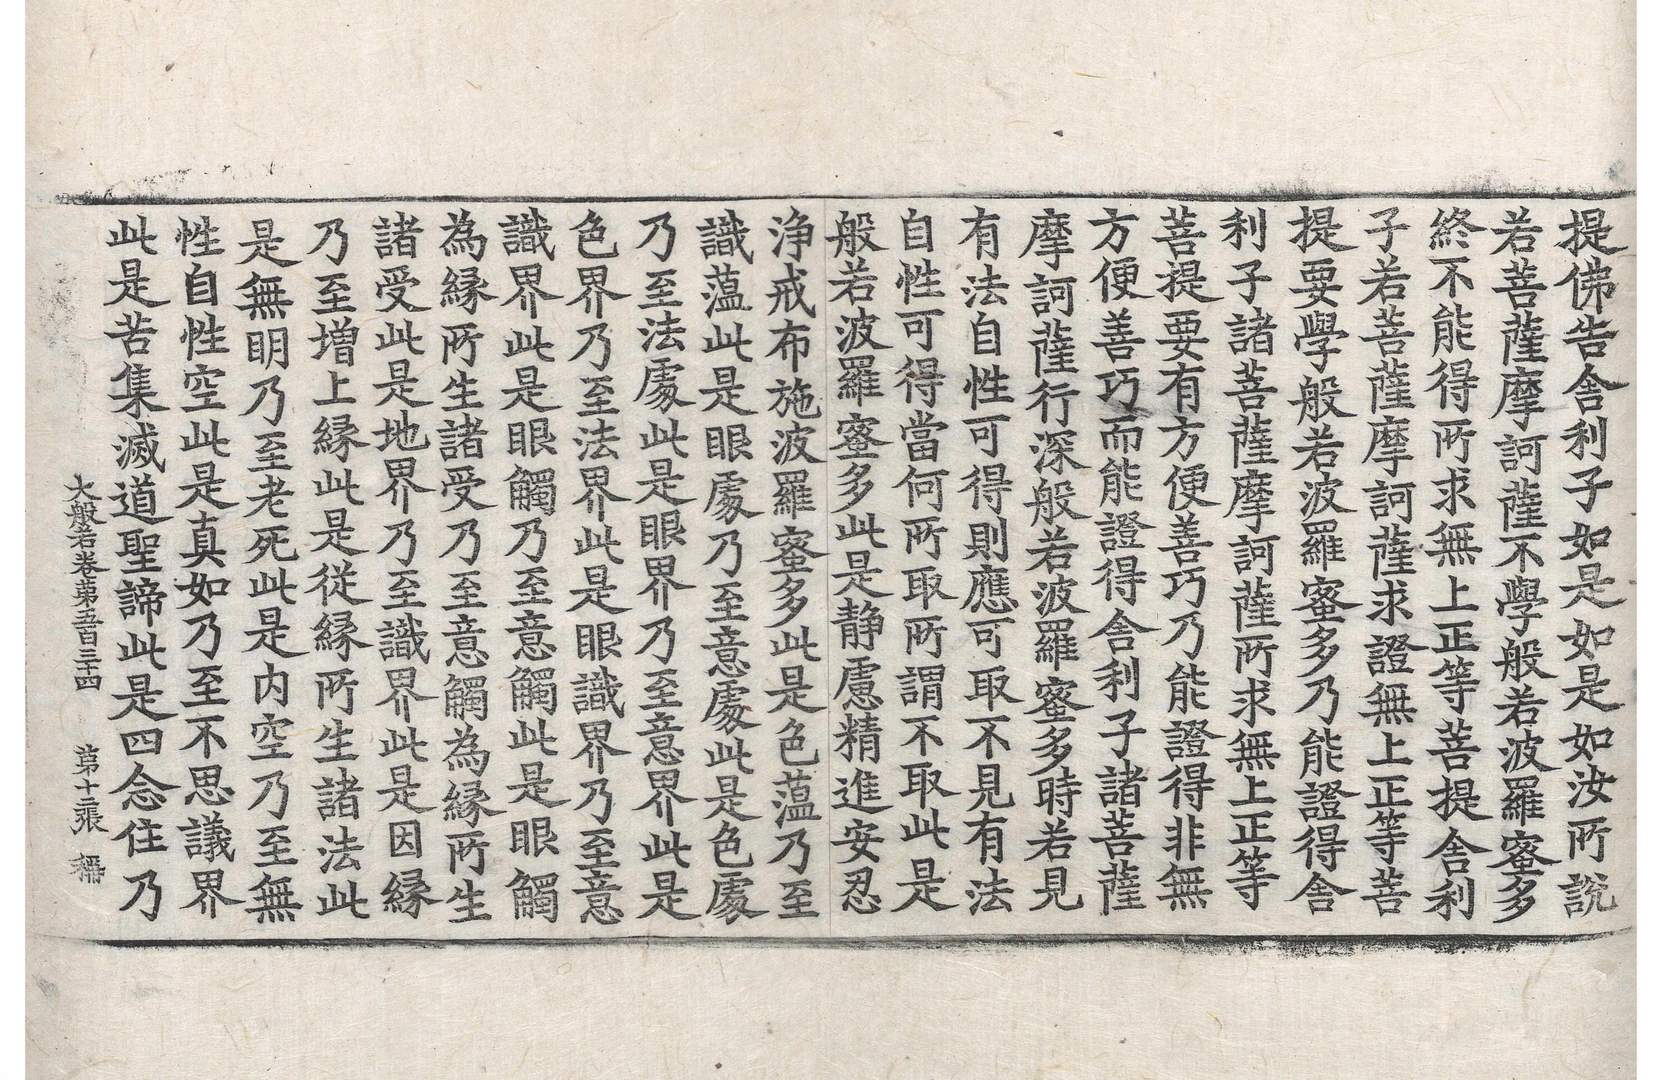 提佛告舍利子如是如是如汝所說
若菩薩摩訶薩不學般若波羅蜜多
終不能得所求無上正等菩提舍利
子若菩薩摩訶薩求證無上正等菩
提要學般若波羅蜜多乃能證得舍
利子諸菩薩摩訶薩所求無上正等
菩提要有方便善巧乃能證得非無
方便善巧而能證得舍利子諸菩薩
摩訶薩行深般若波羅蜜多時若見
有法自性可得則應可取不見有法
自性可得當何所取所謂不取此是
般若波羅蜜多此是静慮精進安忍
淨戒布施波羅蜜多此是色蘊乃至
識蘊此是眼處乃至意處此是色處
乃至法處此是眼界乃至意界此是
色界乃至法界此是眼識界乃至意
識界此是眼觸乃至意觸此是眼觸
為緣所生諸受乃至意觸為緣所生
諸受此是地界乃至識界此是因緣
乃至增上緣此是從緣所生諸法此
是無明乃至老死此是内空乃至無
性自性空此是真如乃至不思議界
此是苦集滅道聖諦此是四念住乃
大般若卷第五百三十四 第十二張 稱